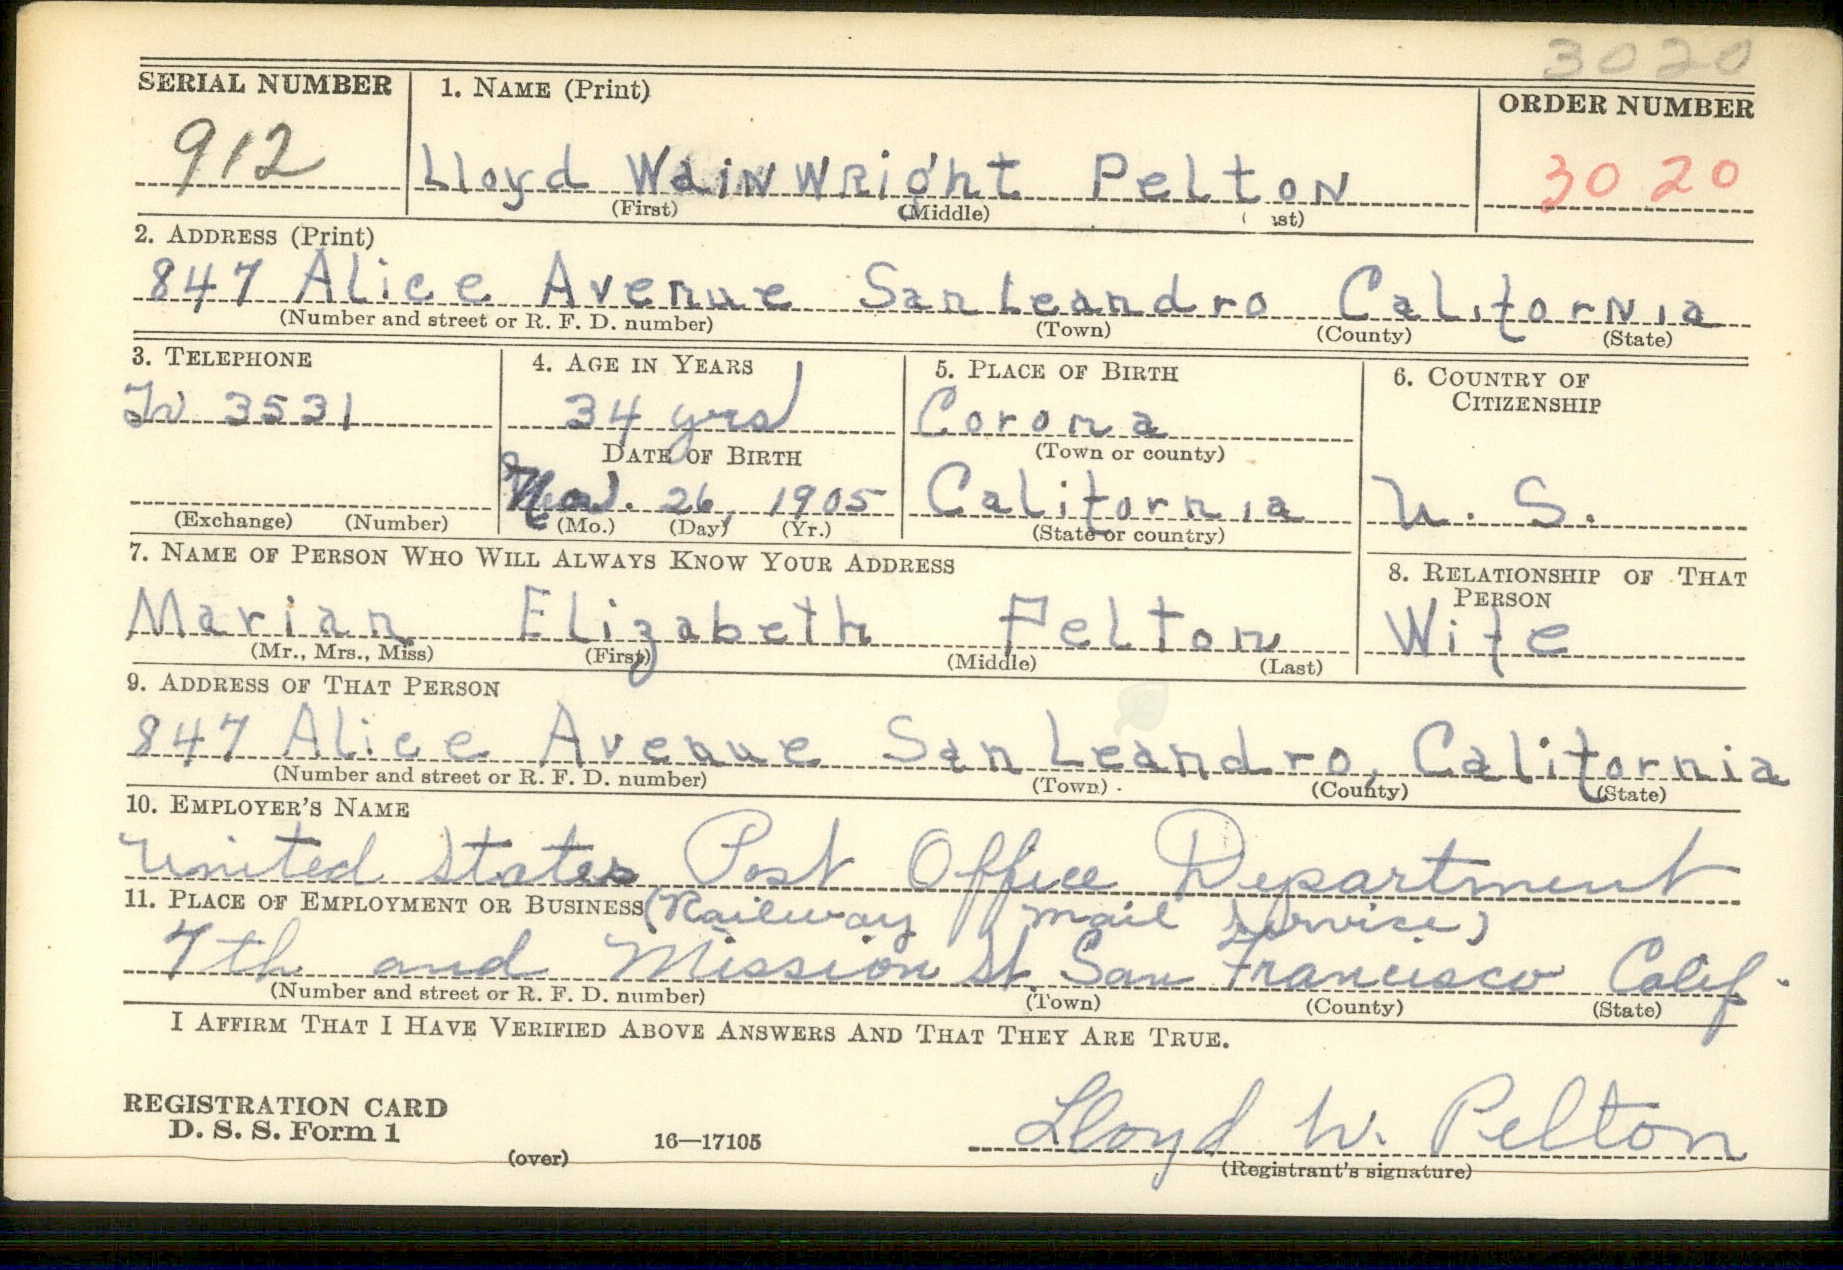 3020
SERIAL NUMBER 1. NAME (Print) ORDER NUMBER
912 Lloyd Wainwright Pelton 3020
(First) (Middle) ( ast)
2. ADDRESS (Print)
847 Alice Avenue San Leandro California
(Number and street or R. F. D. number) (Town) (County) (State)
3. TELEPHONE 4. AGE IN YEARS 5. PLACE OF BIRTH 6. COUNTRY OF CITIZENSHIP
3531 34 yrs Corona
DATE OF BIRTH (Town or county)
26, 1905 California U. S.
(Exchange) (Number) (Mo.) (Day) (Yr.) (State or country)
7. NAME OF PERSON WHO WILL ALWAYS KNOW YOUR ADDRESS 8. RELATIONSHIP OF THAT PERSON
Marian Elizabeth Pelton Wife
(Mr., Mrs., Miss) (First) (Middle) (Last)
9. ADDRESS OF THAT PERSON
847 Alice Avenue San Leandro, California
(Number and street or R. F. D. number) (Town) (County) (State)
10. EMPLOYER'S NAME
United States Post Office Department
11. PLACE OF EMPLOYMENT OR BUSINESS (Railway Mail Service)
7th and Mission St San Francisco Calif.
(Number and street or R. F. D. number) (Town) (County) (State)
I AFFIRM THAT I HAVE VERIFIED ABOVE ANSWERS AND THAT THEY ARE TRUE.
REGISTRATION CARD
D. S. S. Form 1
(over) 16—17105 Lloyd W. Pelton
(Registrant's signature)